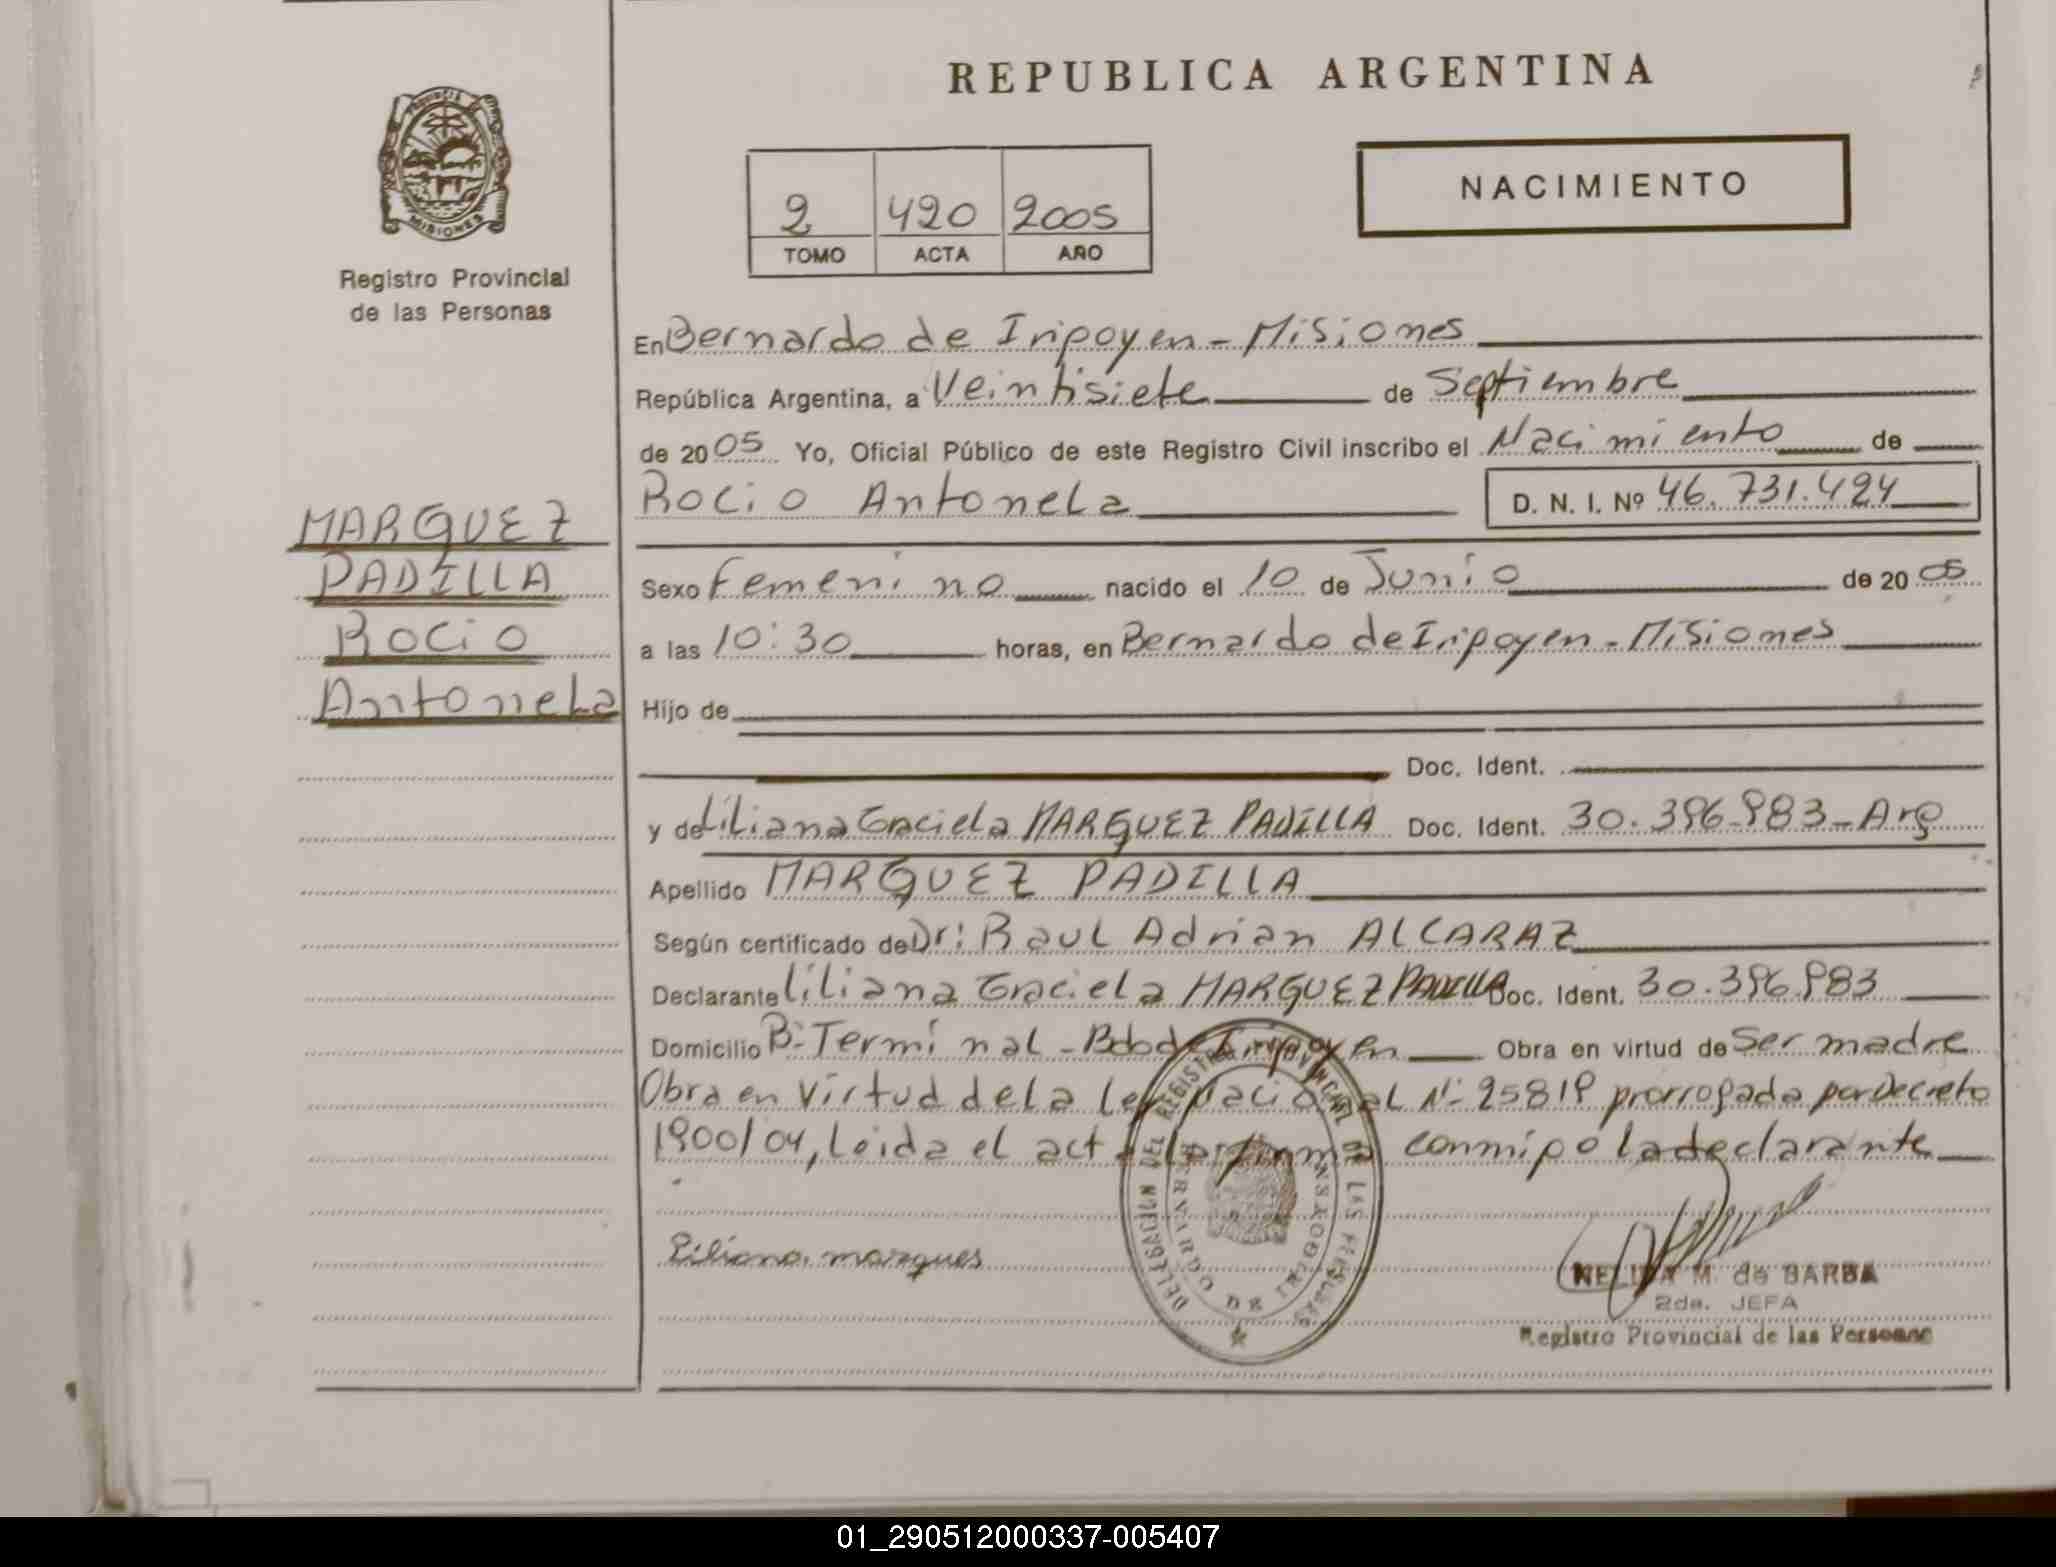 REPUBLICA ARGENTINA
PROVINCIA
MISIONES
Registro Provincial
de las Personas
2 420 2005
TOMO ACTA AÑO
NACIMIENTO
En Bernardo de Irigoyen - Misiones
República Argentina, a Veintisiete de Septiembre
de 2005 Yo, Oficial Público de este Registro Civil inscribo el Nacimiento de
Rocio Antonela D. N. I. Nº 46.731.424
MARQUEZ
PADILLA
Rocio
Antonela
Sexo Femenino nacido el 10 de Junio de 2005
a las 10:30 horas, en Bernardo de Irigoyen - Misiones
Hijo de
Doc. Ident.
y de Liliana Graciela MARQUEZ PADILLA Doc. Ident. 30.396.983 - Arg
Apellido MARQUEZ PADILLA
Según certificado de Dr: Raul Adrian ALCARAZ
Declarante Liliana Graciela MARQUEZ PADILLA Doc. Ident. 30.396.983
Domicilio Bº Terminal - Bdo de Irigoyen Obra en virtud de Ser madre
Obra en virtud de la ley Nacional Nº 25819 prorrogada por Decreto
1900/04, Leida el acta la firma conmigo la declarante
Liliana marques
DELEGACION DEL REGISTRO PROVINCIAL DE LAS PERSONAS
BERNARDO DE IRIGOYEN
NELIDA M. de BARBA
2da. JEFA
Registro Provincial de las Personas
01_290512000337-005407